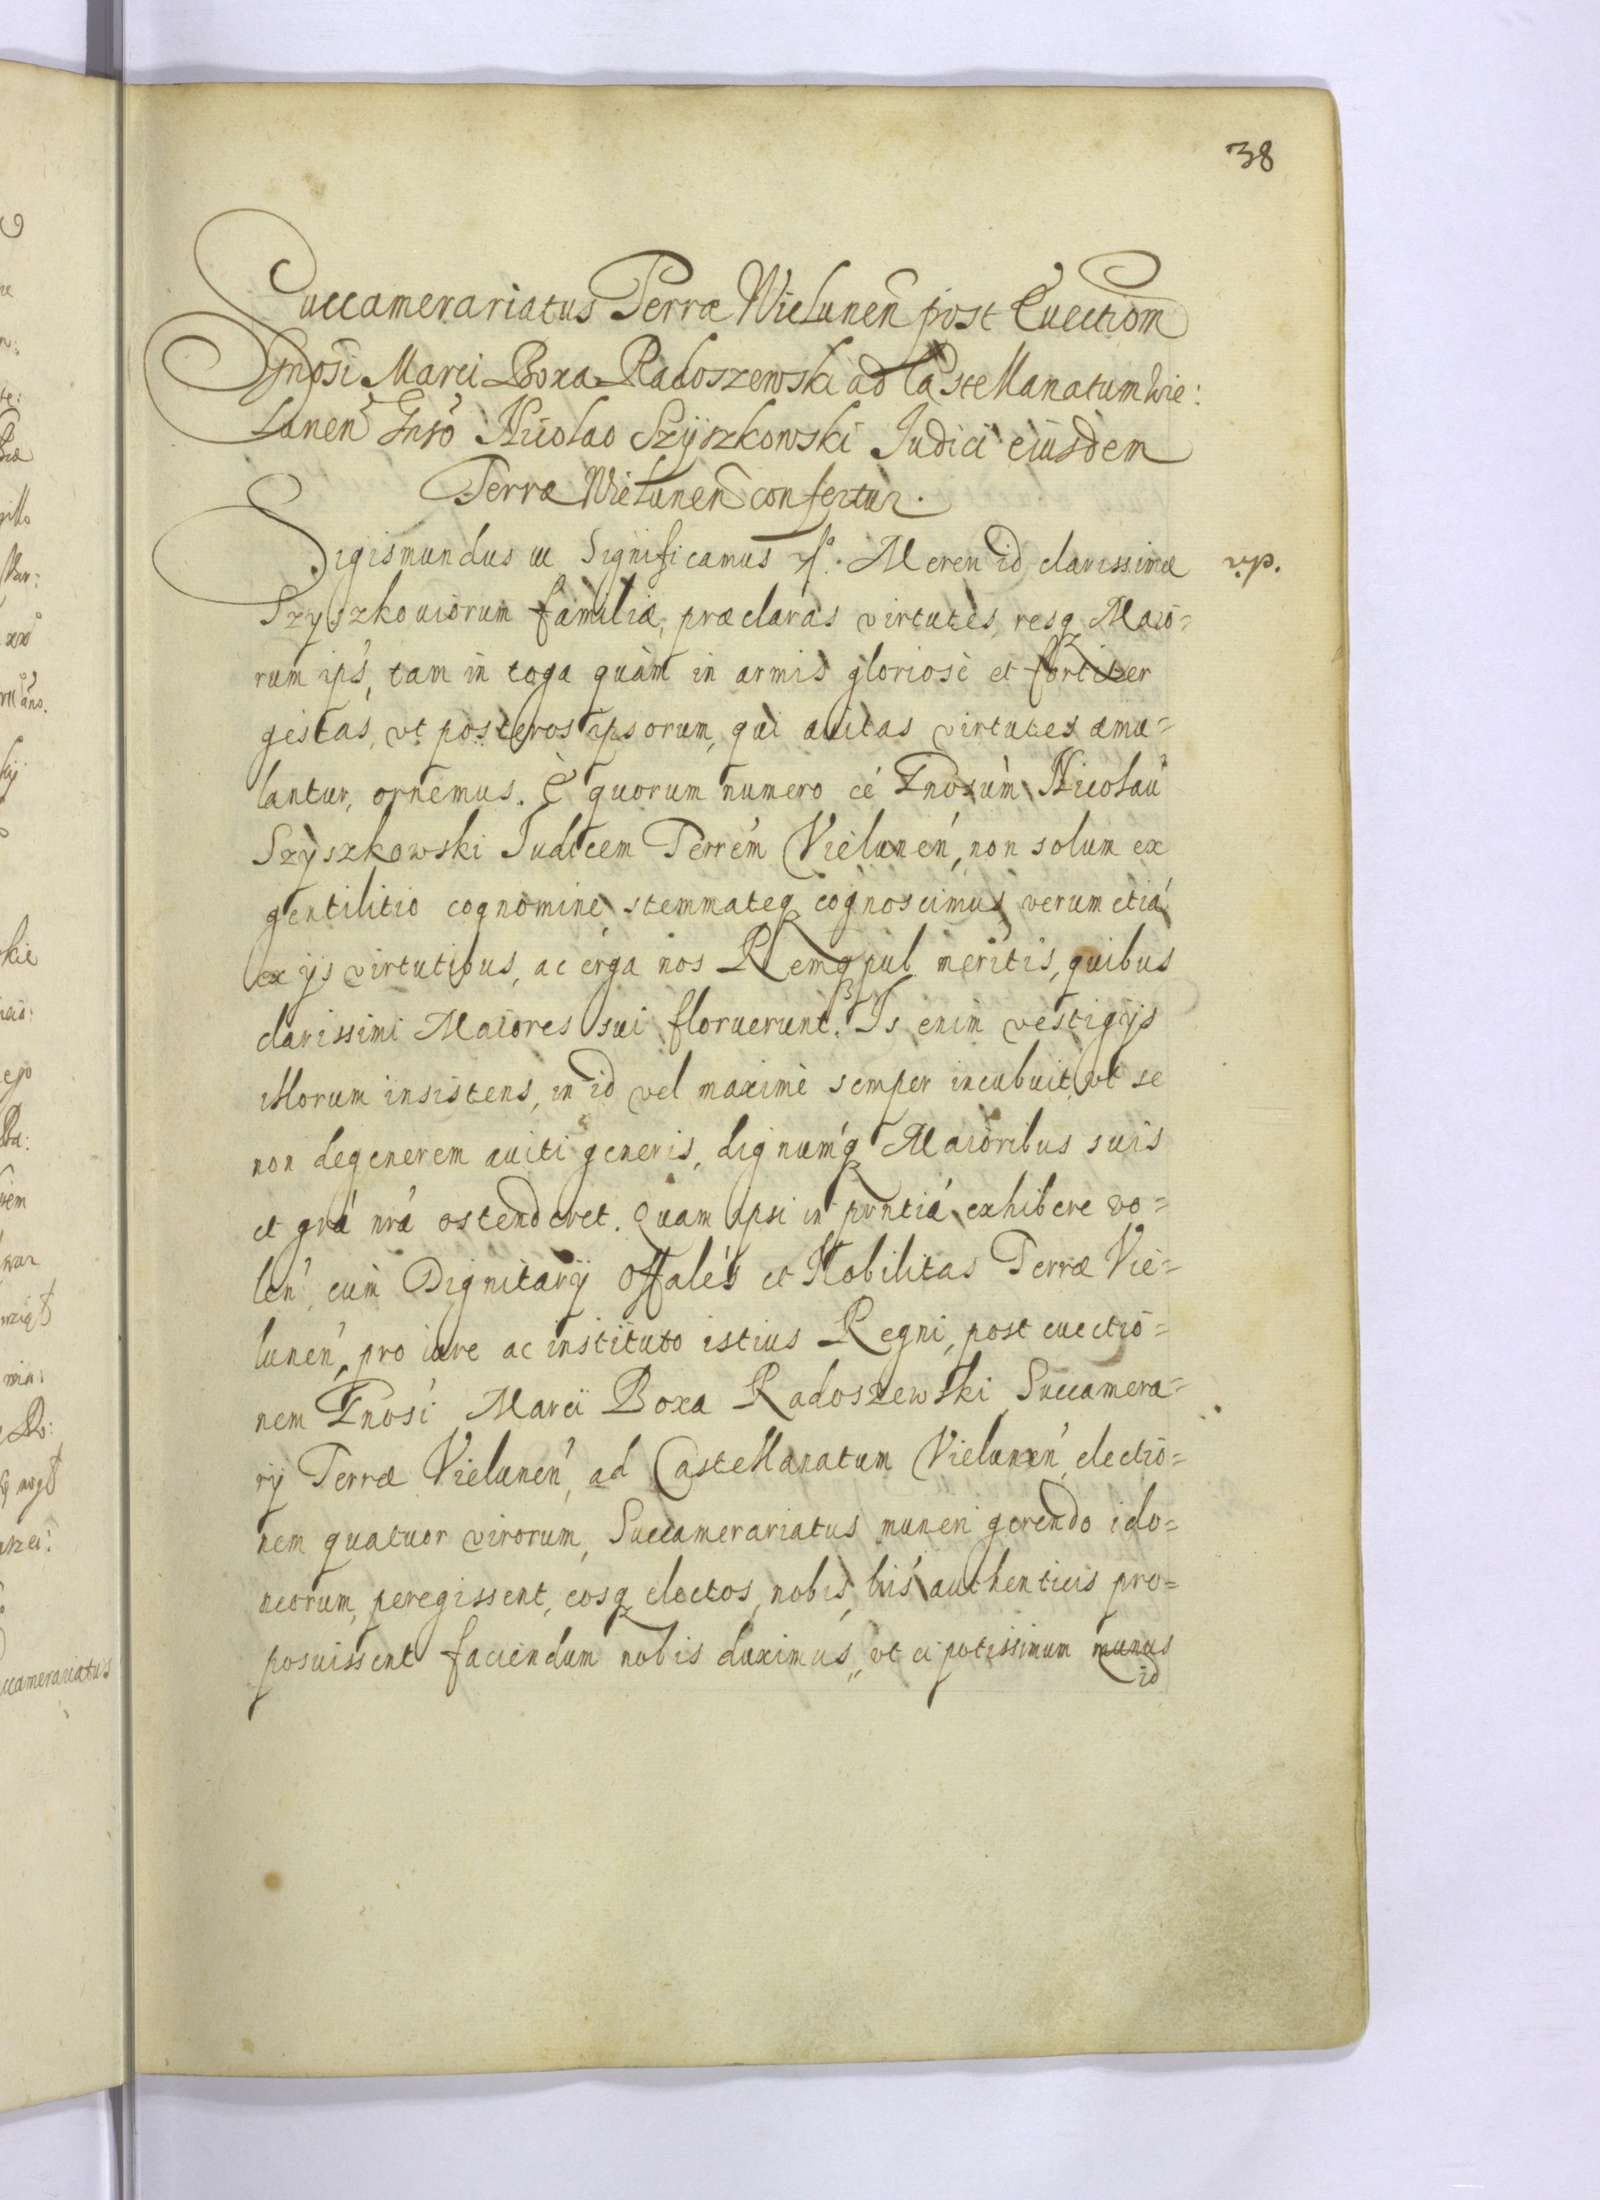 38
Succamerariatus Terræ Wielunen̄ post Euectiom̄
Gnōsi Marci Boxa Radoszewski ad Castellanatum Wie:
lunen̄ Gnsō Nicolao Szyszkowski Judici eiusdem
Terræ Wielunen̄ confertur.
Sigismundus
Significamus
Meren id clarissimæ
Szyszkouiorum familiæ, præclaras virtutes, resq Maio=
rum ips', tam in toga quàm in armis gloriosè et fortiter
gestas, vt posteros ipsorum, qui auitas virtutes æmu=
lantur, ornemus. È quorum numero cé Gnosúm Nicolaū
Szyszkowski Judicem Terrém Vielunen', non solum ex
gentilitio cognomine stemmateq cognoscimus, verum etiá
ex ijs virtutibus, ac erga nos Remqpub meritis, quibus
clarissimi Maiores sui floruerunt. Is enim vestigijs
illorum insistens, in id vel maximè semper incubuit, vt se
non degenerem auiti generis, dignumq́ Maioribus suis
et grá nrá ostenderet. Quam ipsi in prntiá exhibere vo=
len', cum Dignitarij Offalés et Nobilitas Terræ Vie=
lunen', pro iure ac instituto istius Regni, post euectio=
nem Gnosi Marci Boxa Radoszewski Succamera=
rij Terræ Vielunen', ad Castellanatum Vielunen', electio=
nem quatuor virorum, Succamerariatus muneri gerendo ido=
neorum, peregissent, eosq electos, nobis, lris authenticis pro=
posuissent faciendum nobis duximus, vt ei potissimum munus
id
ccamerariatus